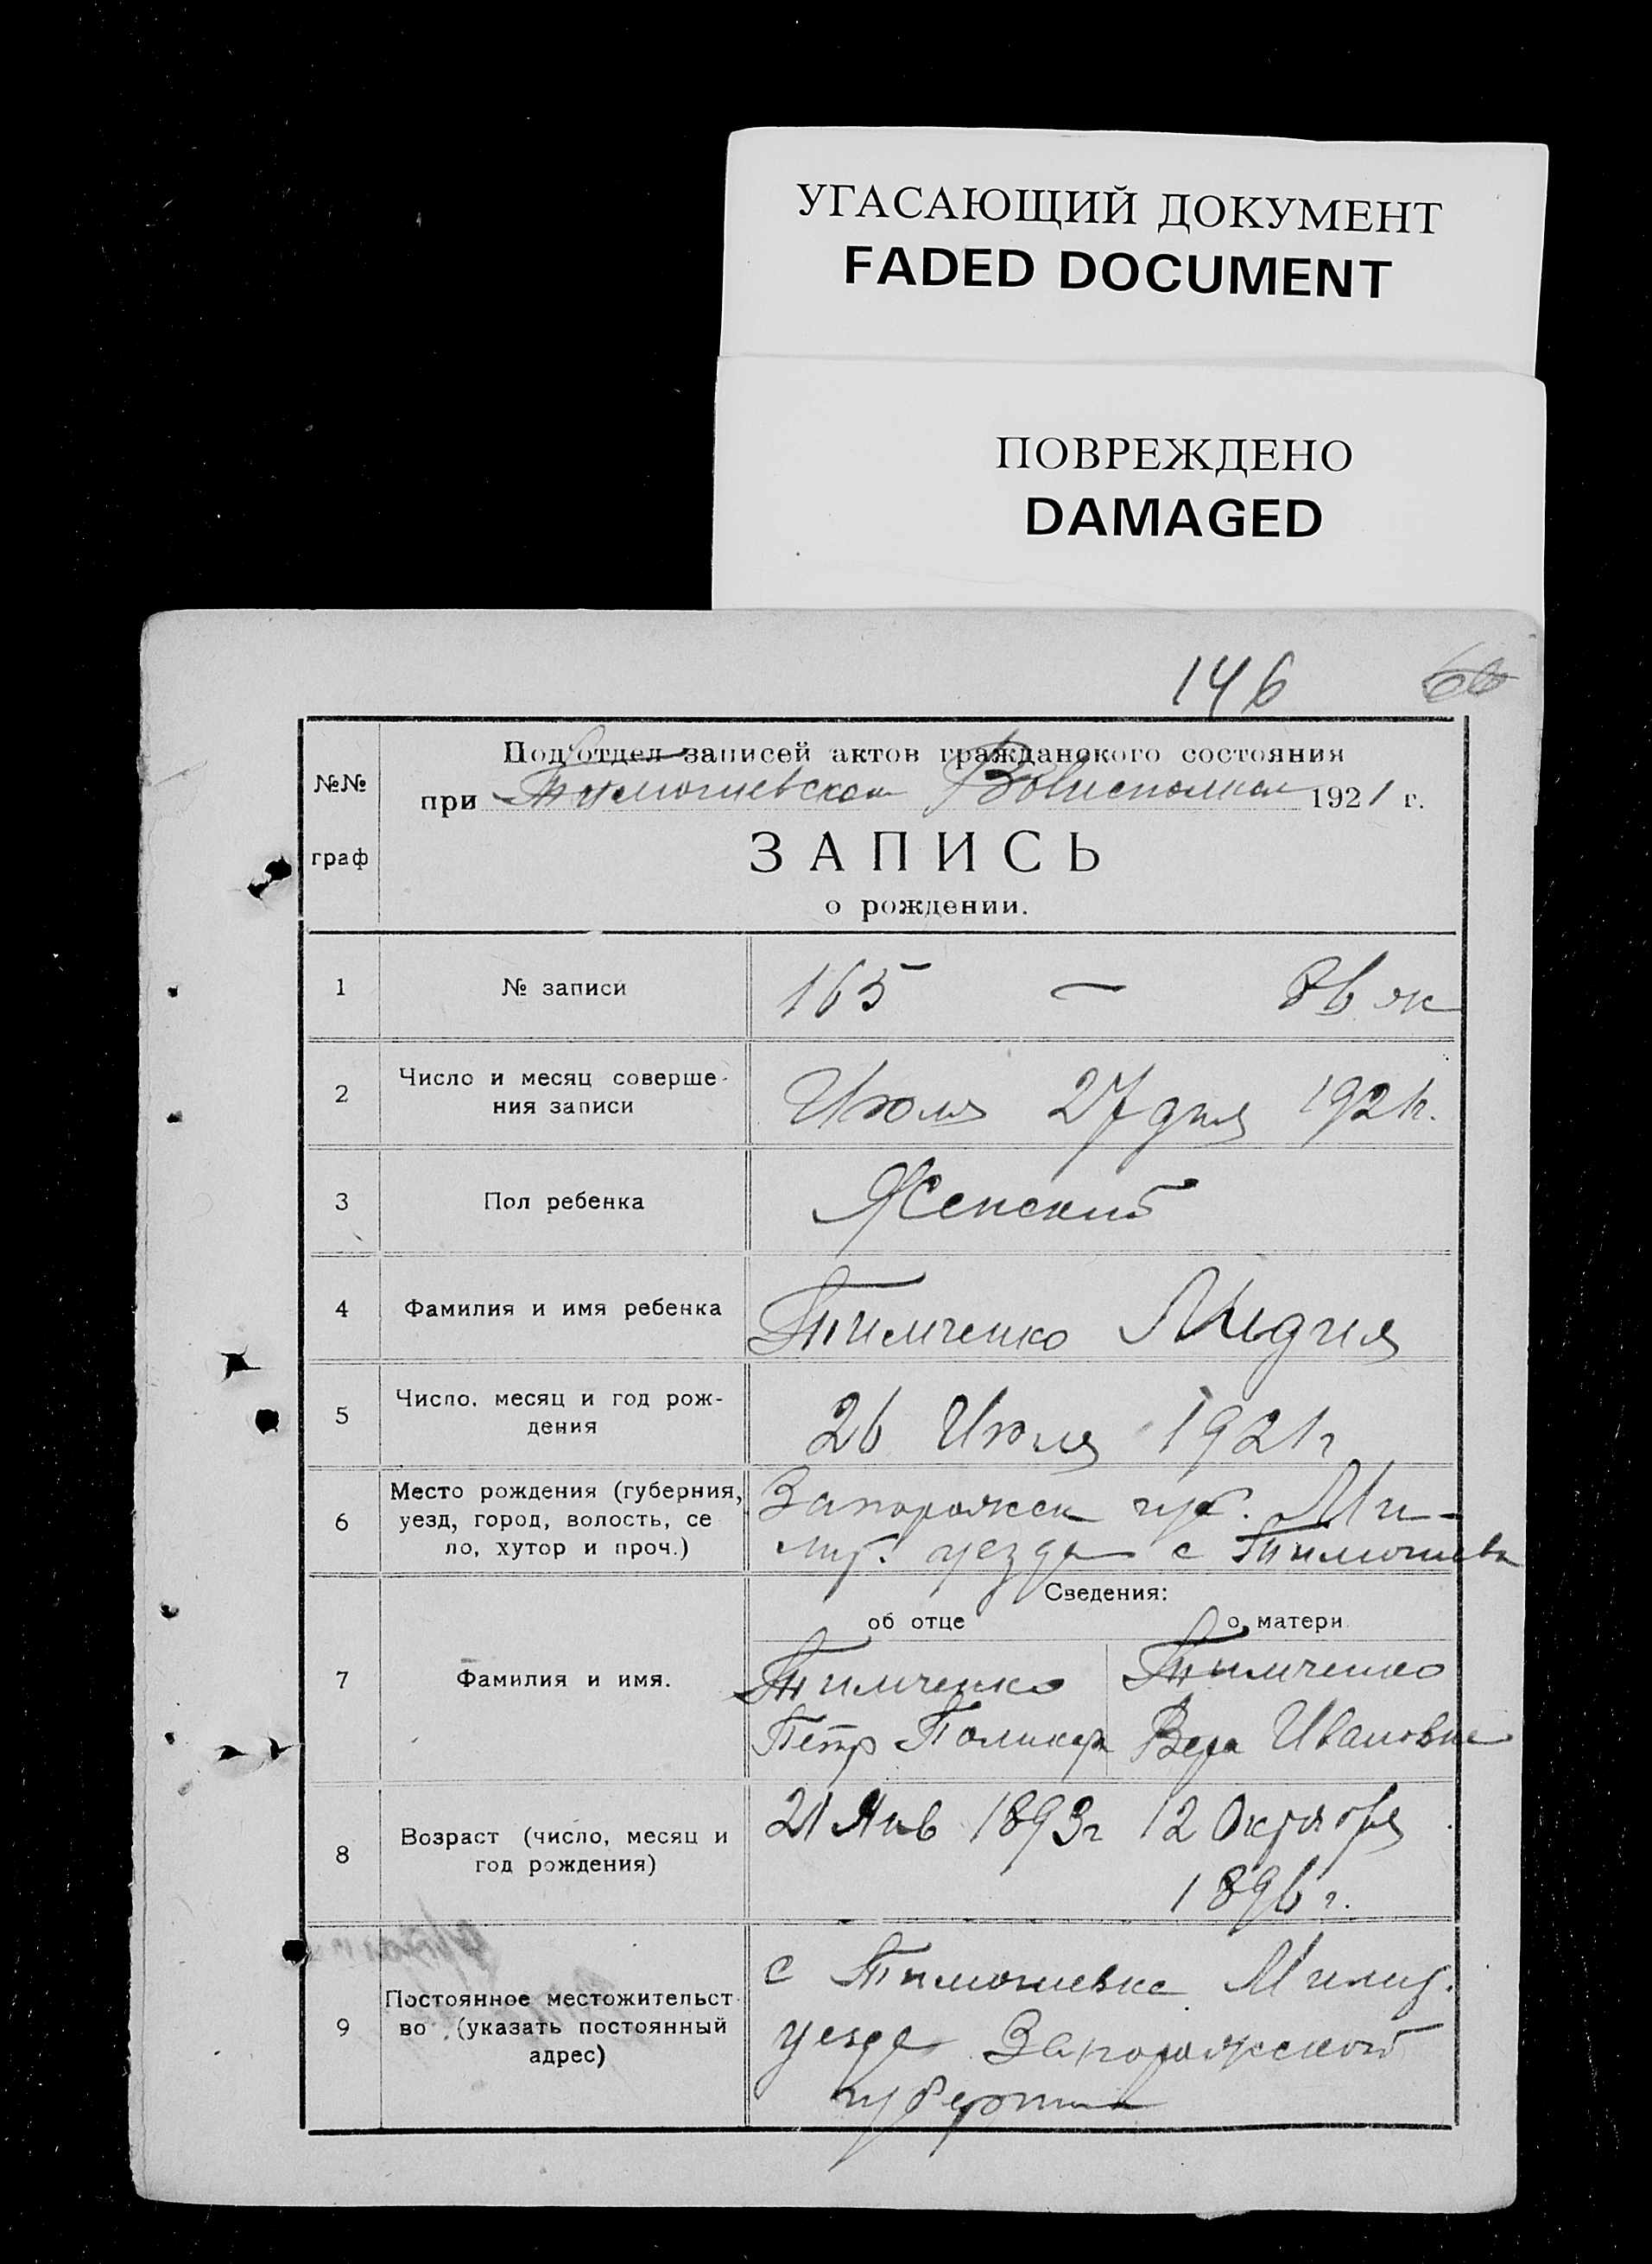 УГАСАЮЩИЙ ДОКУМЕНТ
FADED DOCUMENT
ПОВРЕЖДЕНО
DAMAGED
146
№№ граф
Под'отдел записей актов гражданского состояния
при Тимошевском Волисполкоме 1921 г.
ЗАПИСЬ
о рождении.
1 № записи 165 —
2 Число и месяц соверше-
ния записи Июля 27 дня 1921 г.
3 Пол ребенка Женский
4 Фамилия и имя ребенка Тимченко Лидия
5 Число, месяц и год рож-
дения 26 Июля 1921 г
6 Место рождения (губерния,
уезд, город, волость, се
ло, хутор и проч.) Запорожск губ. Ме-
лит. уезда с Тимошевка
Сведения:
об отце о матери
7 Фамилия и имя. Тимченко Тимченко
Петр Поликар Вера Ивановна
8 Возраст (число, месяц и
год рождения) 21 Янв 1893 г 12 Октября
1896 г.
9 Постоянное местожительст
во (указать постоянный
адрес) с Тимошевка Мелит.
уезда Запорожской
губернии